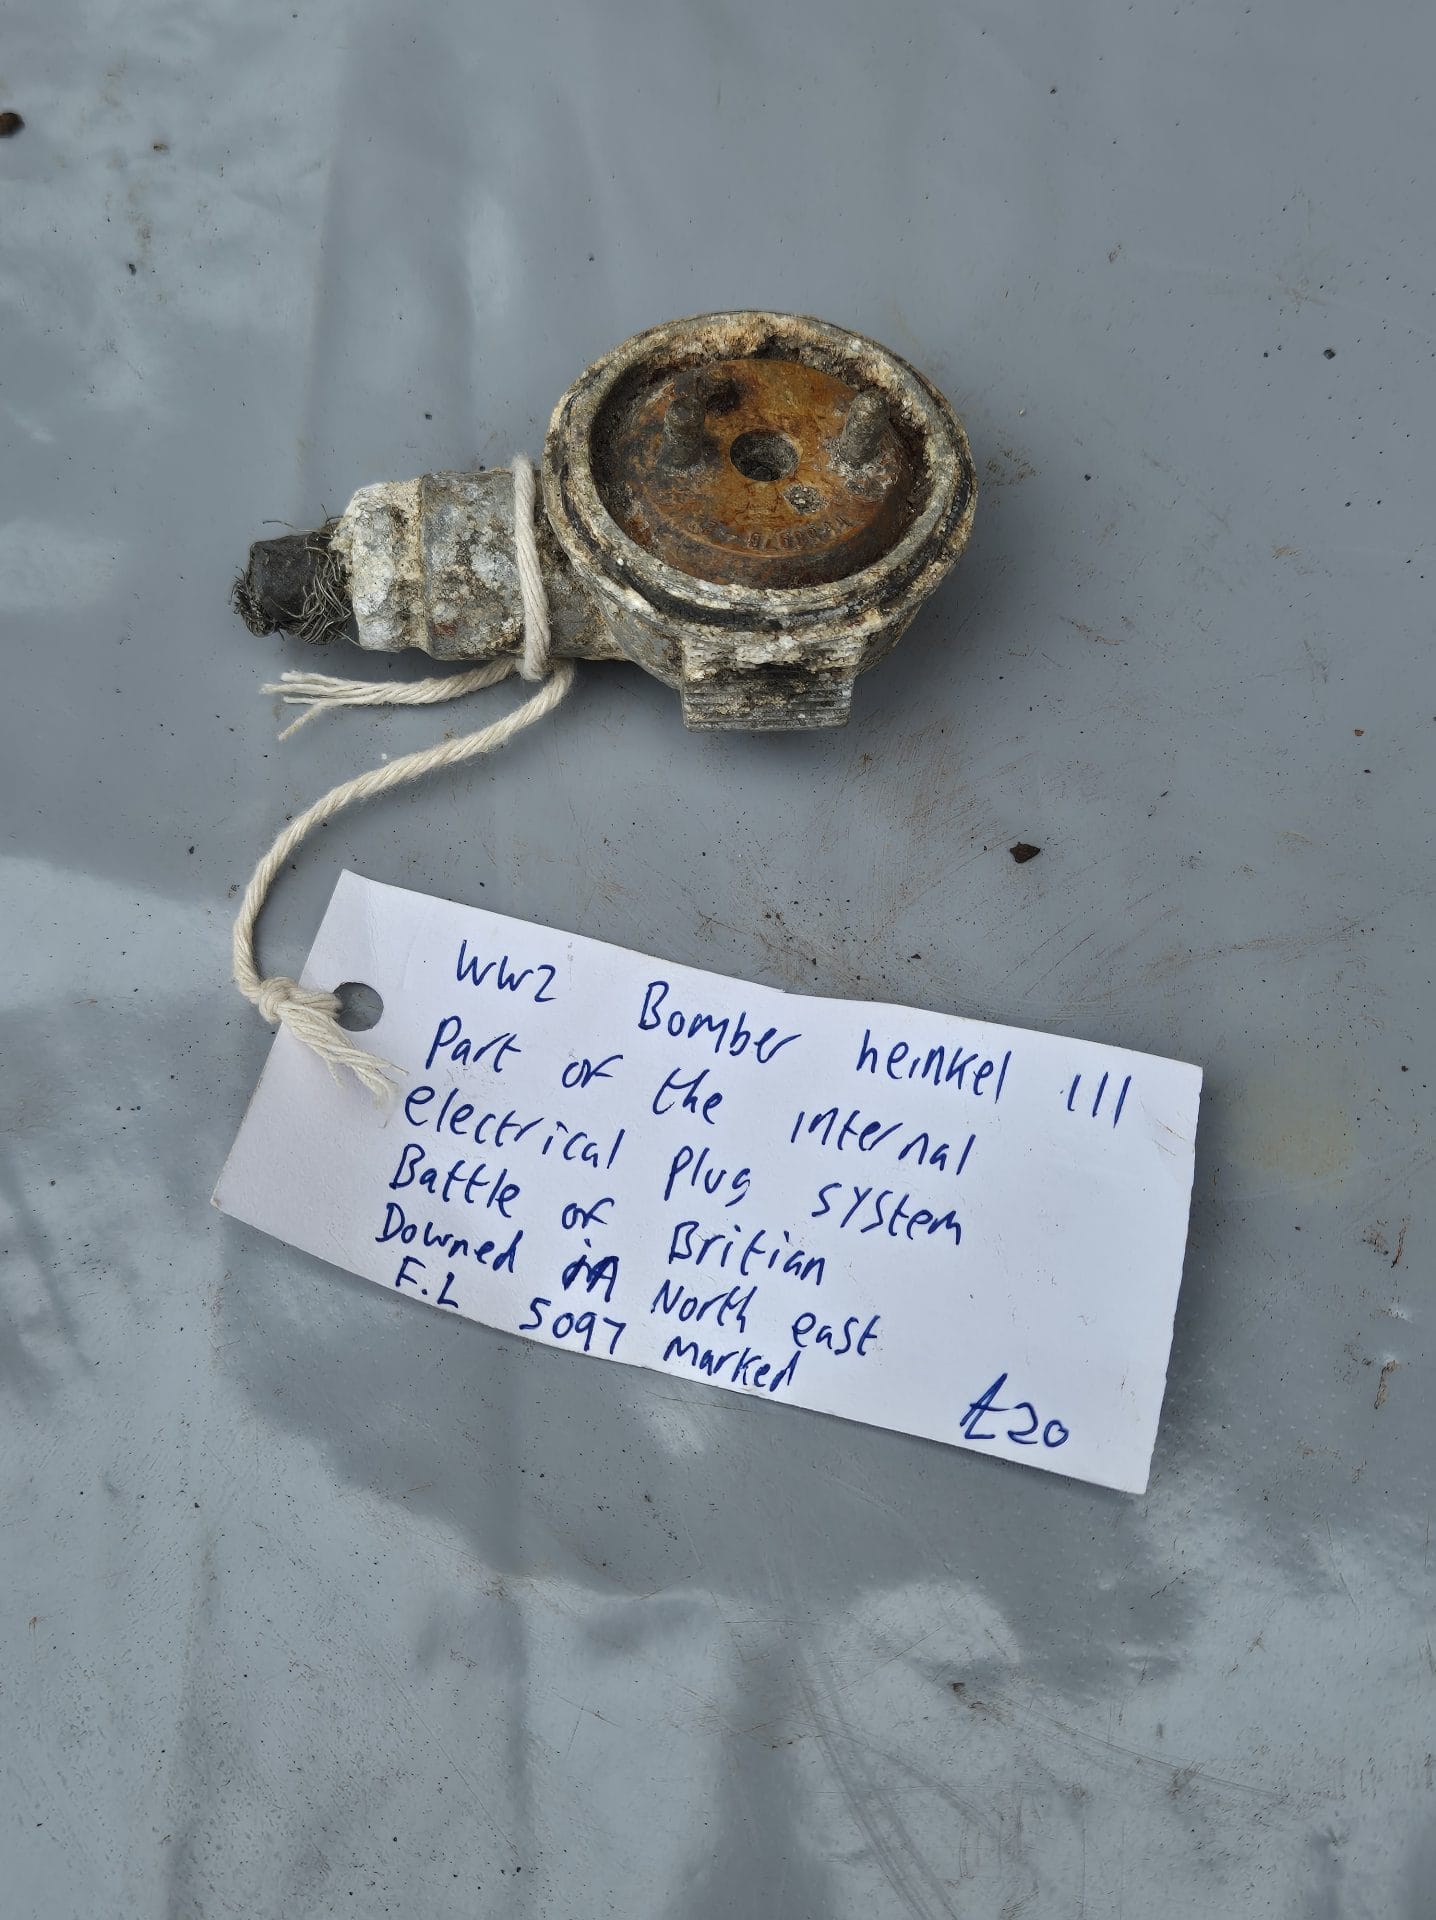 WW2 Bomber heinkel 111
Part of the internal
electrical plug system
Battle of Britian
Downed in North east
F.L 5097 marked
£20